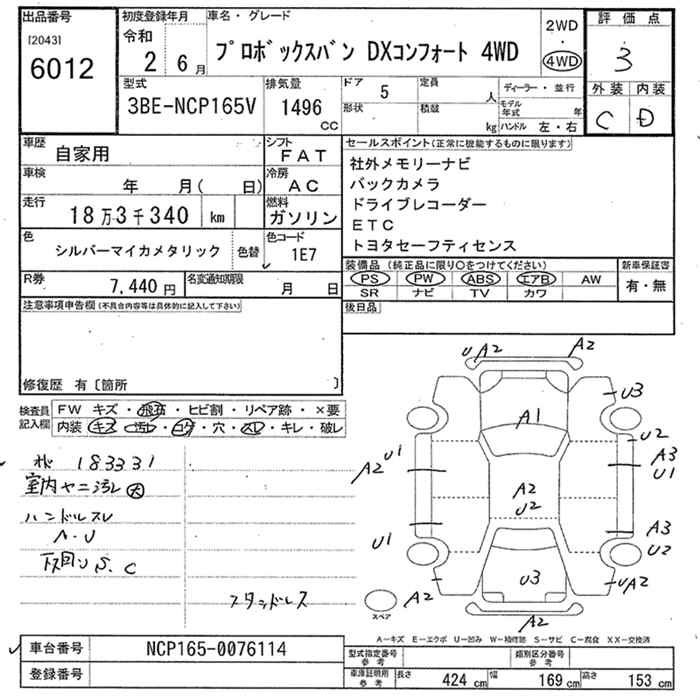 出品番号 [2043] 6012
初度登録年月 令和 2 6月
車名・グレード プロボックスバン DXコンフォート 4WD
2WD ・ 4WD
評価点 3
外装 内装
C D
型式 3BE-NCP165V
排気量 1496 CC
ドア 5
定員 人
形状
積載 kg
ディーラー・並行
モデル年式 年
ハンドル 左・右
車歴 自家用
シフト FAT
車検 年 月( 日)
冷房 AC
走行 18万3千340 km
燃料 ガソリン
色 シルバーマイカメタリック 色替
色コード 1E7
R券 7,440円
名変通知期限 月 日
セールスポイント(正常に機能するものに限ります)
社外メモリーナビ
バックカメラ
ドライブレコーダー
ETC
トヨタセーフティセンス
装備品(純正品に限り○をつけてください) 新車保証書
PS PW ABS エアB AW 有・無
SR ナビ TV カワ
後日品
注意事項申告欄(不具合内容等は具体的に記入して下さい)
修復歴 有〔箇所 〕
検査員記入欄
FW キズ・飛石・ヒビ割・リペア跡・×要
内装 キズ・汚レ・コゲ・穴・スレ・キレ・破レ
183331
室内ヤニ汚レ 大
ハンドルスレ
A・U
下回り S.C
スタッドレス
U A2 A2
U3
A1
U2
U1 A3
A2 U1
A2
U2
A3
U1 U2
U3
A2 UA2
A2
スペア
A-キズ E-エクボ U-凹み W-補修跡 S-サビ C-腐食 XX-交換済
車台番号 NCP165-0076114
登録番号
型式指定番号 参考
類別区分番号 参考
車庫証明用 参考 長さ 424 cm 幅 169 cm 高さ 153 cm